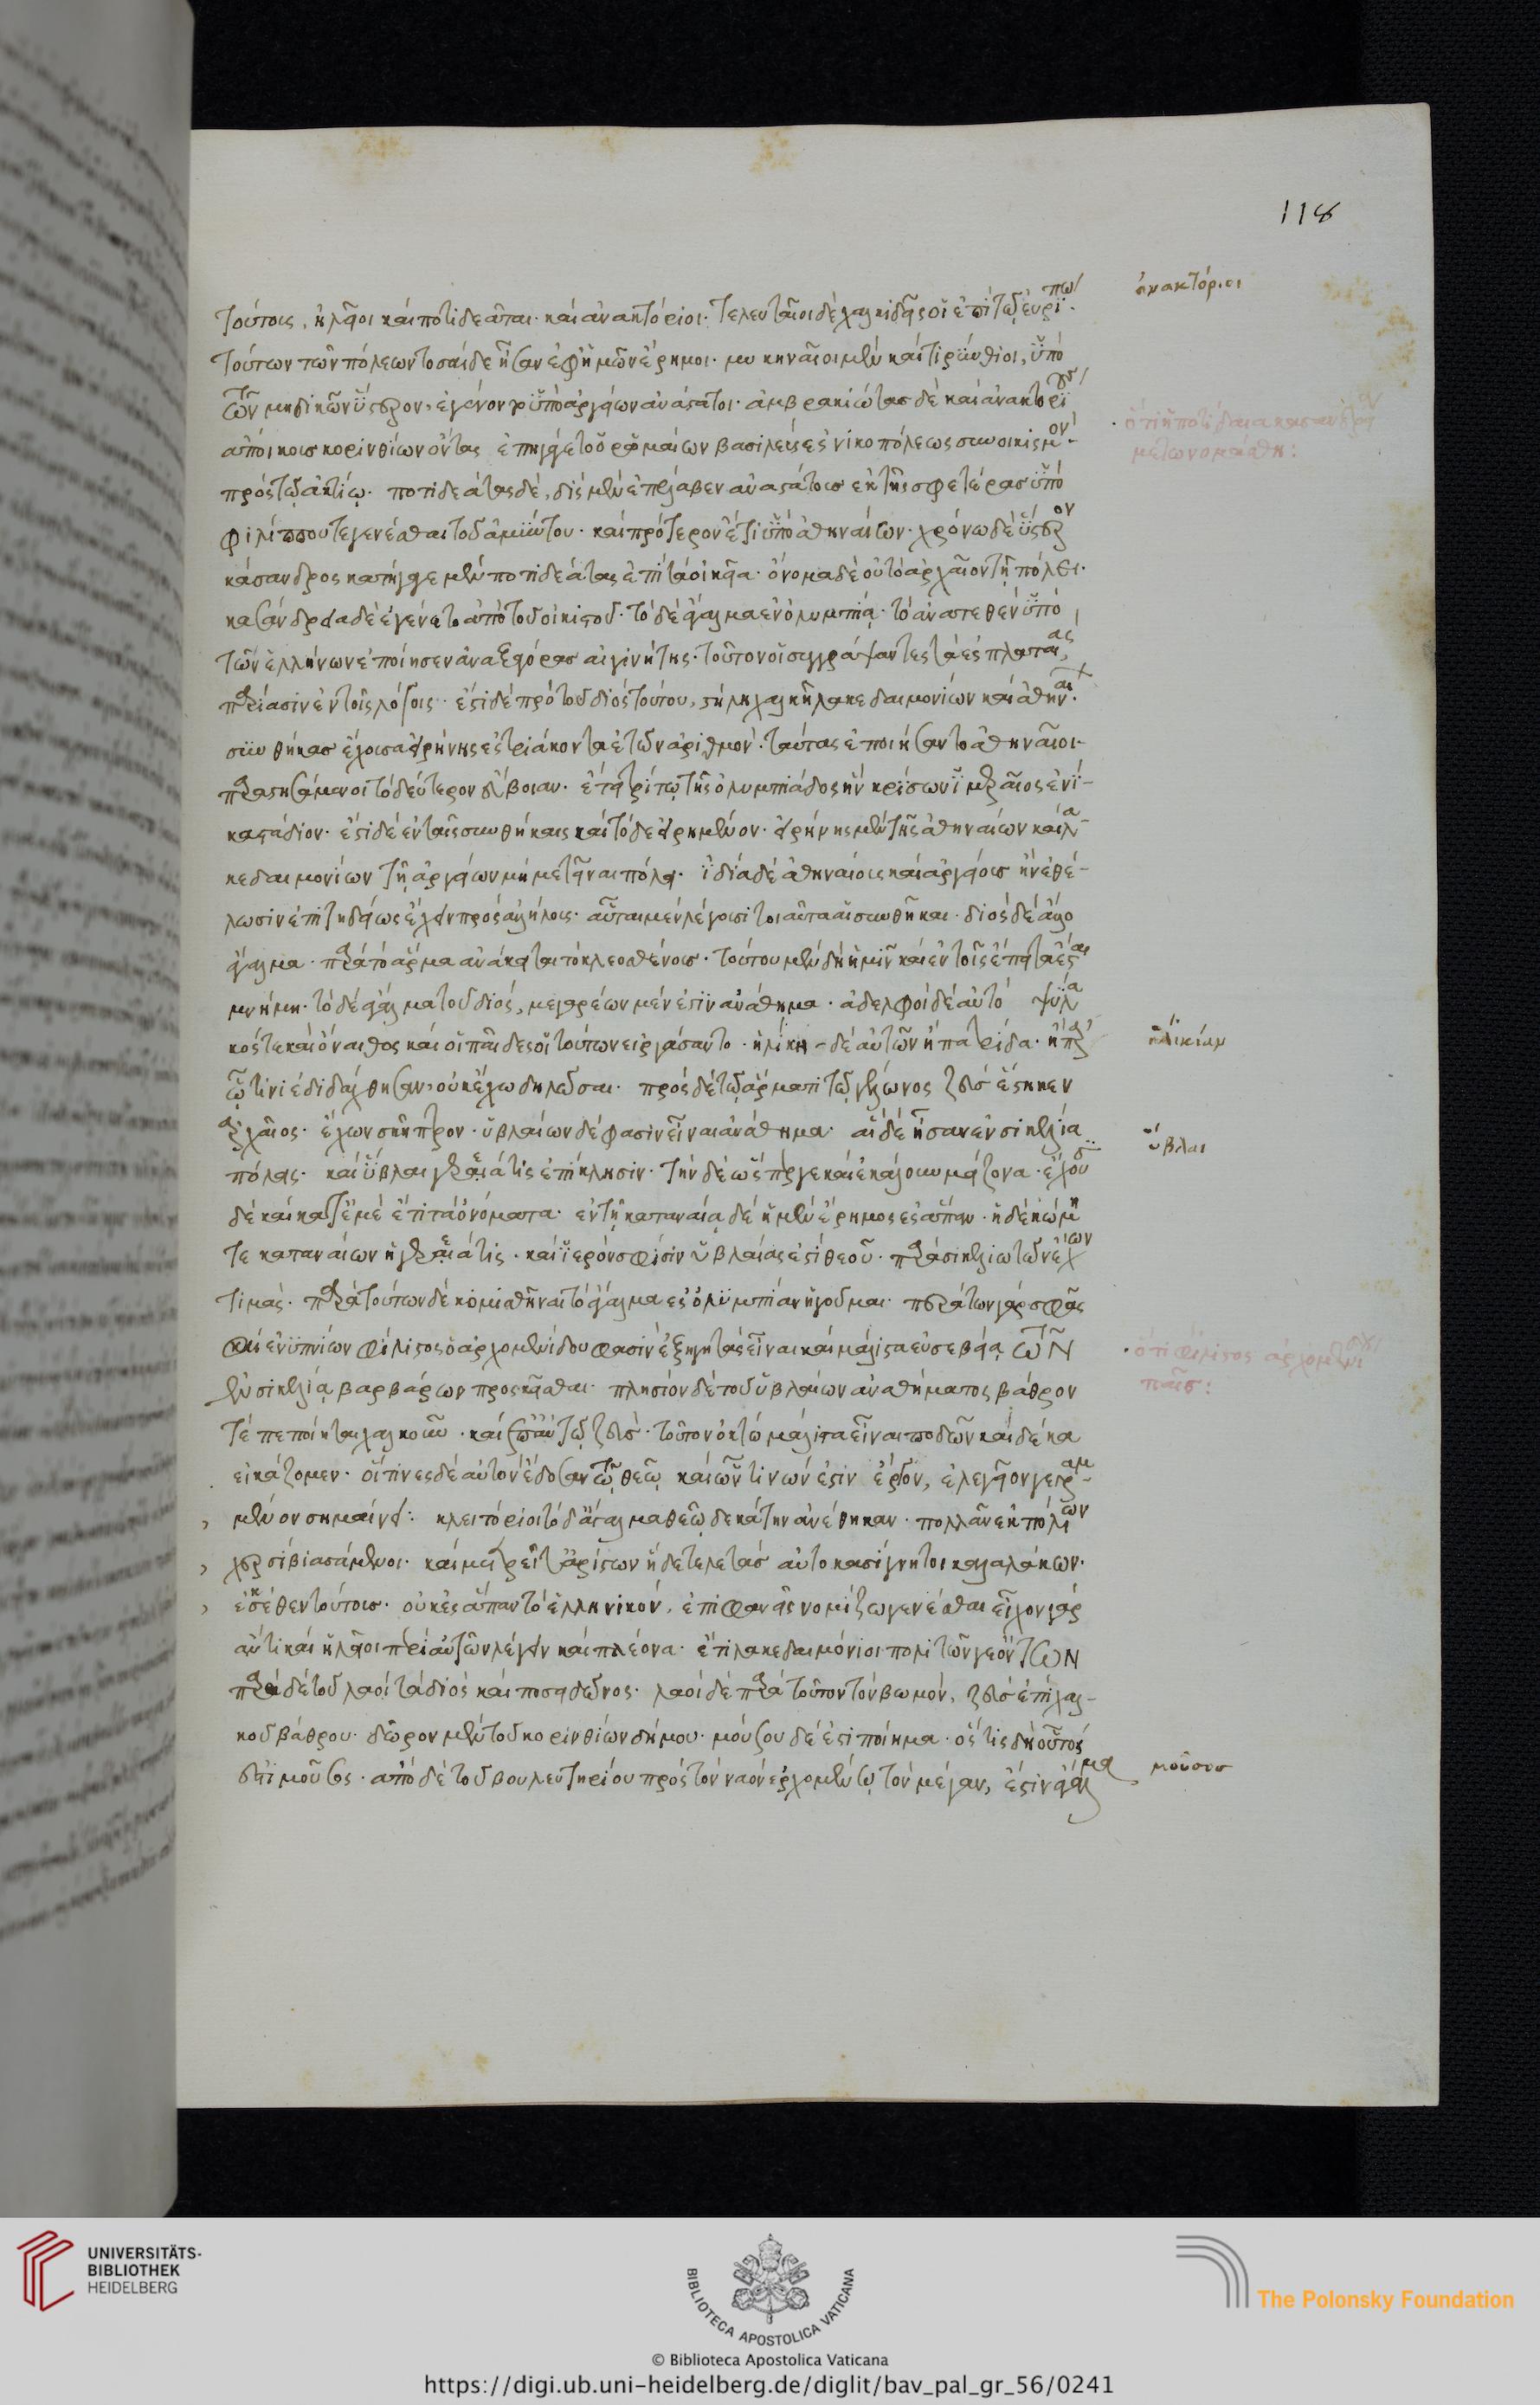 118
τούτοις, ἠλεῖοι καὶ ποτιδεᾶται· καὶ ἀνακτόριοι· τελευταῖοι δὲ χαλκιδεῖς οἱ ἐπὶ τῷ εὐρίπω·
ἀνακτόριοι
τούτων τῶν πόλεων τοσαίδε ἦσαν ἐφ ἡμῶν ἔρημοι· μυκηναῖοι μὲν καὶ τιρύνθιοι, ὑπὸ
τῶν μηδικῶν ὕστερον, ἐγένοντο ὑπὸ ἀργείων ἀνάστατοι· ἀμβρακιώτας δὲ καὶ ἀνακτορί
ἀποίκους κορινθίων ὄντας ἐπηγάγετο ὁ ῥωμαίων βασιλεὺς ἐς νικοπόλεως συνοικισμὸν·
ὅτι ἡ ποτίδαια κασανδρεια
μετωνομάσθη:
πρὸς τῷ ἀκτίῳ· ποτιδεάτας δὲ, δὶς μὲν ἐπέλαβεν ἀναστάτους ἐκ τῆς σφετέρας ὑπὸ
φιλίππου τε γενέσθαι τοῦ ἀμύντου· καὶ πρότερον ἔτι ὑπὸ ἀθηναίων· χρόνω δὲ ὕστερον
κάσανδρος κατήγαγε μὲν ποτιδεάτας ἐπὶ τὰ οἰκεῖα· ὄνομα δὲ οὐ τὸ ἀρχαῖον τῇ πόλει·
κασάνδρεια δὲ ἐγένετο ἀπὸ τοῦ οἰκιστοῦ· τὸ δὲ ἄγαλμα ἐν ὀλυμπίᾳ· τὸ ἀνατεθὲν ὑπὸ
τῶν ἑλλήνων ἐποίησεν ἀναξαγόρας αἰγινήτης· τοῦτον οἱ συγγράψαντες τὰ ἐς πλαταιας,
παριᾶσιν ἐν τοῖς λόγοις· ἔστι δὲ πρὸ τοῦ διὸς τούτου, στήλη χαλκῆ λακεδαιμονίων καὶ ἀθηναι·
συνθήκας ἔχουσα εἰρήνης ἐς τριάκοντα ἐτῶν ἀριθμόν· ταύτας ἐποιήσαντο ἀθηναῖοι·
παραστησάμενοι τὸ δεύτερον εὔβοιαν· ἔτει τρίτῳ τῆς ὀλυμπιάδος ἣν κρίσων ἱμεραῖος ἐνί-
κα στάδιον· ἔστι δὲ ἐν ταῖς συνθήκαις καὶ τόδε εἰρημένον· εἰρήνης μὲν τῆς ἀθηναίων καὶ λα-
κεδαιμονίων τῇ ἀργείων μὴ μετεῖναι πόλει· ἰδία δὲ ἀθηναίοις καὶ ἀργείους ἢν ἐθέ-
λωσιν ἐπιτηδείως ἔχειν πρὸς ἀλλήλους· αὗται μὲν λέγουσι τοιαῦτα αἱ συνθῆκαι· διὸς δὲ ἄλλο
ἄγαλμα· παρὰ τὸ ἅρμα ἀνάκειται τὸ κλεοσθένους· τούτου μὲν δὴ ἡμῖν καὶ ἐν τοῖς ἔπειτα ἔσται
μνήμη· τὸ δὲ ἄγαλμα τοῦ διός, μεγαρέων μέν ἐστιν ἀνάθημα· ἀδελφοὶ δὲ αὐτὸ ψύλα
κός τε καὶ ὄναιθος καὶ οἱ παῖδες οἱ τούτων εἰργάσαντο· ἡλίκη - δὲ αὐτῶν ἢ πατρίδα· ἢ παρ
ἡλικίαν
ᾧτινι ἐδιδάχθησαν, οὐκ ἔχω δηλῶσαι· πρὸς δὲ τῷ ἅρματι τῷ γέλωνος ζεὺς ἕστηκεν
ἀρχαῖος· ἔχων σκῆπτρον· ὑβλαίων δέ φασιν εἶναι ἀνάθημα· αἱ δὲ ἦσαν ἐν σικελία
πόλεις· καὶ ὕβλαι γερεᾶτις ἐπίκλησιν· τὴν δὲ ὥσπερ γε καὶ ἐκάλουν μείζονα· ἔχουσι
ὕβλαι
δὲ καὶ κατ ἐμὲ ἔτι τὰ ὀνόματα· ἐν τῇ καταναίᾳ δὲ ἡ μὲν ἔρημος ἐς ἅπαν· ἡ δὲ κώμη
τε καταναίων ἡ γερεᾶτις· καὶ ἱερόν σφισιν ὑβλαίας ἐστὶ θεοῦ· παρὰ σικελιωτῶν ἔχων
τιμάς· παρὰ τούτων δὲ κομισθῆναι τὸ ἄγαλμα ἐς ὀλυμπίαν ἡγοῦμαι· τεράτων γάρ σφᾶς
καὶ ἐνυπνίων φίλιστος ὁ ἀρχομενίδου φασὶν ἐξηγητὰς εἶναι καὶ μάλιστα εὐσεβείᾳ τῶν
ὅτι φίλιστος ἀρχομενίδου
παῖς:
ἐν σικελίᾳ βαρβάρων προσκεῖσθαι· πλησίον δὲ τοῦ ὑβλαίων ἀναθήματος βάθρον
τέ πεποίηται χαλκοῦν· καὶ ἐπ αὐτῷ ζεὺς· τοῦτον ὀκτὼ μάλιστα εἶναι ποδῶν καὶ δέκα
εἰκάζομεν· οἵτινες δὲ αὐτὸν ἔδοσαν τῷ θεῷ καὶ ὧντινων ἐστὶν ἔργον, ἐλεγεῖον γεγραμ-
μένον σημαίνει: κλειτόριοι τόδ ἄγαλμα θεῷ δεκάτην ἀνέθηκαν· πολλᾶν ἐκ πολίων
χερσὶ βιασάμενοι· καὶ μετρεῖτ ἀρίστων ἠδὲ τελετὰς αὐτοκασίγνητοι καλαλάκων·
ἔσκέθεν τούτους· οὐκ ἐς ἅπαν τὸ ἑλληνικὸν, ἐπιφανεῖς νομίζω γενέσθαι εἶχον γὰρ
ἄν τι καὶ ἠλεῖοι περὶ αὐτῶν λέγειν καὶ πλέονα· ἔτι λακεδαιμόνιοι πολιτῶν γε ὄντων
παρὰ δὲ τοῦ λαοίτα διὸς καὶ ποσειδῶνος· λαοὶ δὲ παρὰ τοῦτον τὸν βωμόν, ζεὺς ἐπὶ χαλ-
κοῦ βάθρου· δῶρον μὲν τοῦ κορινθίων δήμου· μούσου δέ ἐστι ποίημα· ὅστις δὴ οὗτός
ἐστι μοῦσος· ἀπὸ δὲ τοῦ βουλευτηρίου πρὸς τὸν ναὸν ἐρχομένῳ τὸν μέγαν, ἔστιν ἄγαλμα
μοῦσος
UNIVERSITÄTS-
BIBLIOTHEK
HEIDELBERG
BIBLIOTECA APOSTOLICA VATICANA
© Biblioteca Apostolica Vaticana
The Polonsky Foundation
https://digi.ub.uni-heidelberg.de/diglit/bav_pal_gr_56/0241